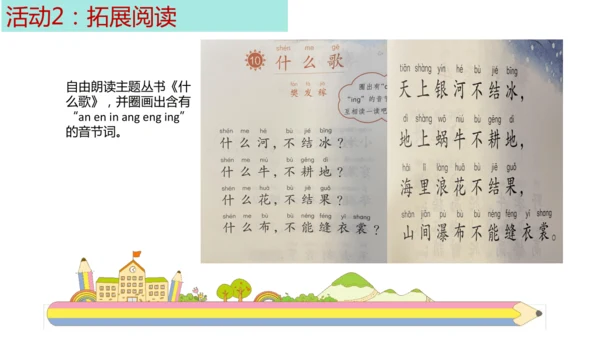 活动2：拓展阅读
自由朗读主题丛书《什
么歌》，并圈画出含有
“an en in ang eng ing”
的音节词。
shén me gē
10 什么歌
樊发稼
圈出有“
“ing”的音节
互相读一读吧
shén me hé bù jié bīng
什么河，不结冰？
shén me niú bù gēng dì
什么牛，不耕地？
shén me huā bù jiē guǒ
什么花，不结果？
shén me bù bù néng féng yī shang
什么布，不能缝衣裳？
tiān shàng yín hé bù jié bīng
天上银河不结冰，
dì shàng wō niú bù gēng dì
地上蜗牛不耕地，
hǎi lǐ làng huā bù jiē guǒ
海里浪花不结果，
shān jiān pù bù bù néng féng yī shang
山间瀑布不能缝衣裳。